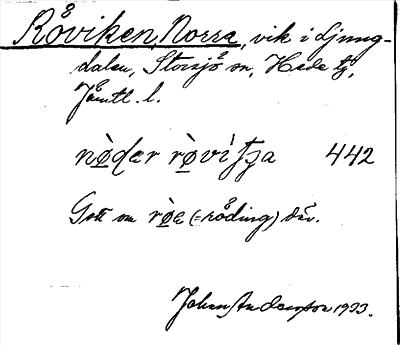 Röviken, Norra, vik i Ljung-
dalen, Storsjö sn, Hede tg,
Jämtl. l.
nø̀dær rø̀viʃʒa 442
Gott om rø̀e (= röding) där.
Johan Andersson 1933.